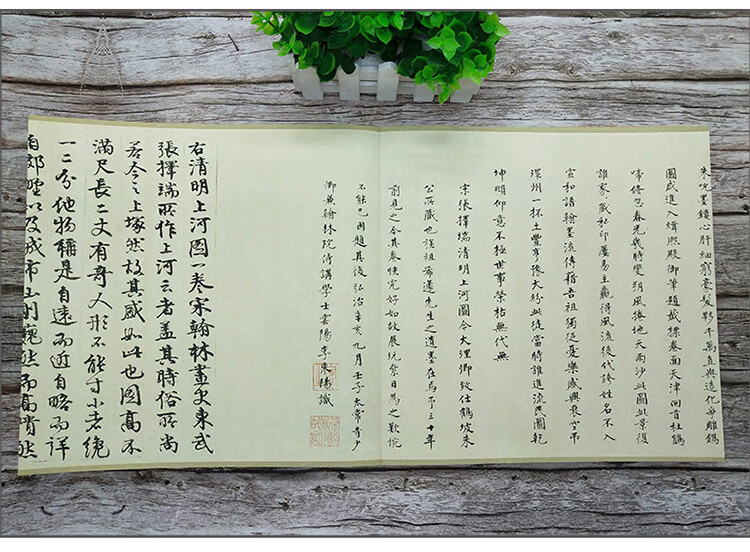 朱吮墨鏤心肝細窮毫髮夥千萬直與造化爭雕鐫
圖成進入緝熙殿御筆題籤標卷面天津回首杜鵑
啼倏忽春光幾時變朔風捲地天雨沙此圖此景復
誰家〻藏私印屢易主贏得風流後代誇姓名不入
宣和譜翰墨流傳藉吾祖獨從憂樂感興衰空弔
環州一抔土豐亨豫大紛此徒當時誰進流民圖乾
坤頫仰意不極世事榮枯無代無
宋張擇端清明上河圖今大理卿致仕鶴坡朱
公所藏也族祖希蘧先生之遺墨在焉予三十年
前見之今其卷帙完好如故展玩累日為之歎惋
不能已因題其後弘治辛亥九月壬子太常寺少
卿兼翰林院侍講學士雲陽李東陽識
右清明上河圖一卷宋翰林畫史東武
張擇端所作上河云者蓋其時俗所尚
若今之上塚然故其盛如此也圖高不
滿尺長二丈有奇人形不能寸小者纔
一二分他物稱是自遠而近自略而詳
自郊野以及城市山則巍然而高隤然